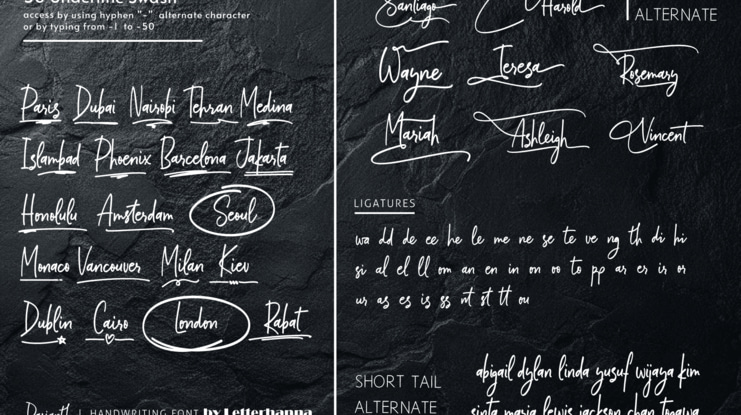 50 Underline Swash
access by using hyphen "-" alternate character
or by typing from -1 to -50
Paris Dubai Nairobi Tehran Medina
Islambad Phoenix Barcelona Jakarta
Honolulu Amsterdam Seoul
Monaco Vancouver Milan Kiev
Dublin Cairo London Rabat
| HANDWRITING FONT by Letterhanna
Santiago Harold
ALTERNATE
Wayne Teresa Rosemary
Mariah Ashleigh Vincent
LIGATURES
wa dd de ee he le me ne se te ve ng th di hi
si al el ll om an en in on oo to pp ar er ir or
ur as es is ss nt st tt ou
SHORT TAIL
ALTERNATE
abigail dylan linda yusuf wijaya kim
sinta maria lewis jackson chan